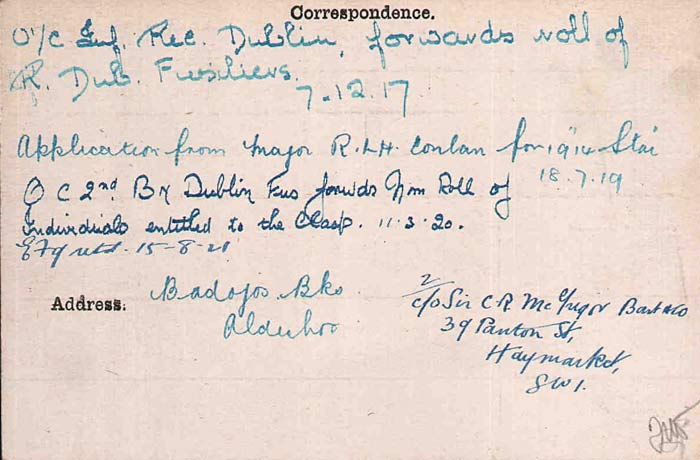 Correspondence.
O/c Inf. Rec. Dublin, forwards roll of
R. Dub. Fusiliers.
7.12.17
Application from Major R.L.H. Conlan for 1914 Star
18.7.19
O C 2nd Bn Dublin Fus forwds Nm Roll of
individuals entitled to the Clasp. 11.3.20.
15-8-21
Address.
Badajos Bks
Aldershot
2/ c/o Sir C R McGrigor Bart & Co
39 Panton St,
Haymarket,
SW1.